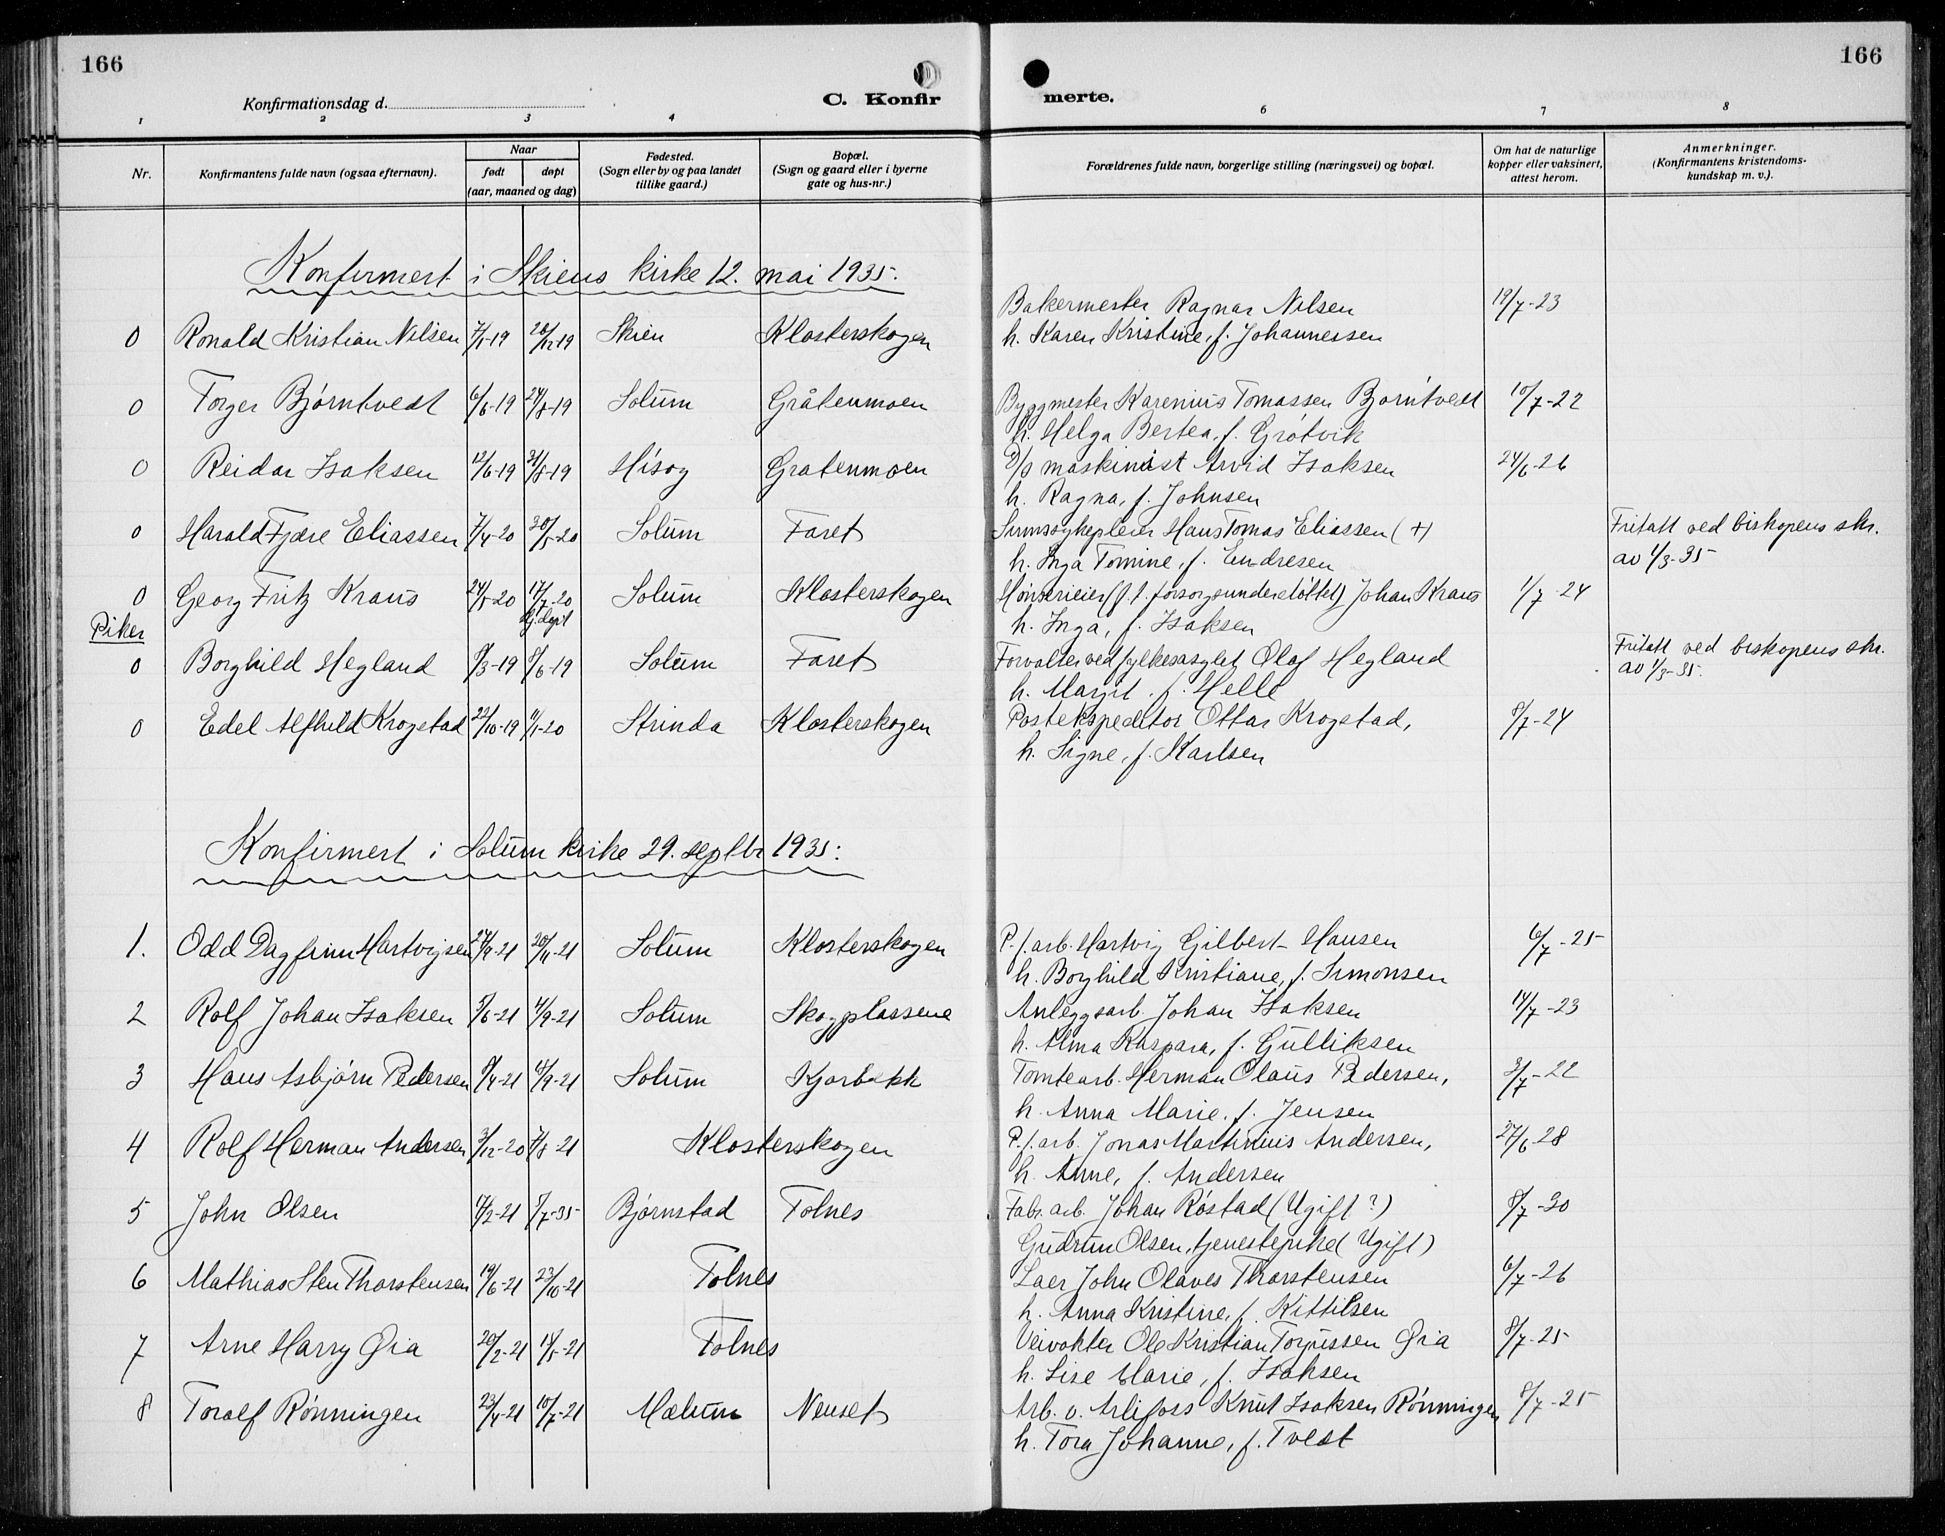 166
166
Konfirmationsdag d.
C. Konfir
merte.
1 2 3 4 6 7 8
Nr.
Konfirmantens fulde navn (ogsaa efternavn).
Naar
født døpt
(aar, maaned og dag)
Fødested.
(Sogn eller by og paa landet
tillike gaard.)
Bopæl.
(Sogn og gaard eller i byerne
gate og hus-nr.)
Forældrenes fulde navn, borgerlige stilling (næringsvei) og bopæl.
Om hat de naturlige
kopper eller vaksinert,
attest herom.
Anmerkninger.
(Konfirmantens kristendoms-
kundskap m. v.).
Konfirmert i Skiens kirke 12. mai 1935.
Bakermester Ragnar Nilsen 19/7-23
0 Ronald Kristian Nilsen 7/1-19 28/12-19 Skien Klosterskogen h. Karen Kristine, f. Johannessen
0 Torger Bjørntvedt 6/6-19 24/8-19 Solum Gråtenmoen Byggmester Karenius Tomassen Bjørntvedt 10/7-22
h. Helga Bertea, f. Grøtvik
0 Reidar Isaksen 12/6-19 31/8-19 Hisøy Gråtenmoen D/S maskinist Arvid Isaksen 24/6-26
h. Ragna, f. Johnsen
0 Harald Fjære Eliassen 7/4-20 20/5-20 Solum Faret Sinnsykepleier Hans Tomas Eliassen (+) Fritatt ved biskopens skr.
h. Inga Tomine, f. Endresen av 1/3-35
0 Georg Fritz Kraus 24/5-20 17/7-20 Solum Klosterskogen Hønserieier (f.t. forsorgsunderstøttet) Johan Kraus 1/7-24
hj.døpt h. Inga, f. Isaksen
Piker
0 Borghild Hegland 9/3-19 9/6-19 Solum Faret Forvalter ved fylkesasylet Olaf Hegland Fritatt ved biskopens skr.
h. Margit, f. Helle av 1/3-35.
0 Edel Alfhild Krogstad 22/10-19 11/1-20 Strinda Klosterskogen Postekspeditør Ottar Krogstad, 8/7-24
h. Signe, f. Karlsen
Konfirmert i Solum kirke 29. septbr 1935:
1. Odd Dagfinn Hartvigsen 27/9-21 20/11-21 Solum Klosterskogen P.f.arb. Hartvig Gilbert Hansen 6/7-25
h. Borghild Kristiane, f. Simonsen
2 Rolf Johan Isaksen 5/6-21 4/9-21 Solum Skogplassene Anleggsarb. Johan Isaksen 14/7-23
h. Alma Kaspara, f. Gulliksen
3 Hans Asbjørn Pedersen 9/4-21 4/9-21 Solum Kjørbekk Tomtearb. Herman Olaus Pedersen, 3/7-22
h. Anna Marie, f. Jensen
4 Rolf Herman Andersen 3/12-20 7/8-21 Klosterskogen P.f.arb. Jonas Martinius Andersen, 27/6-28
h. Anne, f. Andersen
5 John Olsen 17/2-21 5/7-35 Bjørnstad Tolnes Fabr.arb. Johan Røstad (Ugift?) 8/7-30
Gudrun Olsen, tjenestepike (Ugift)
6 Mathias Sten Thorstensen 19/6-21 23/10-21 Tolnes Laer John Olaves Thorstensen 6/7-26
h. Anna Kristine, f. Kittilsen
7 Arne Harry Øia 20/2-21 15/5-21 Tolnes Veivokter Ole Kristian Torjussen Øia 8/7-25
h. Lise Marie, f. Isaksen
8 Toralf Rønningen 23/4-21 10/7-21 Mælum Nenset Arb. v. Arlifoss Knut Isaksen Rønningen 8/7-25
h. Tora Johanne, f. Tvedt